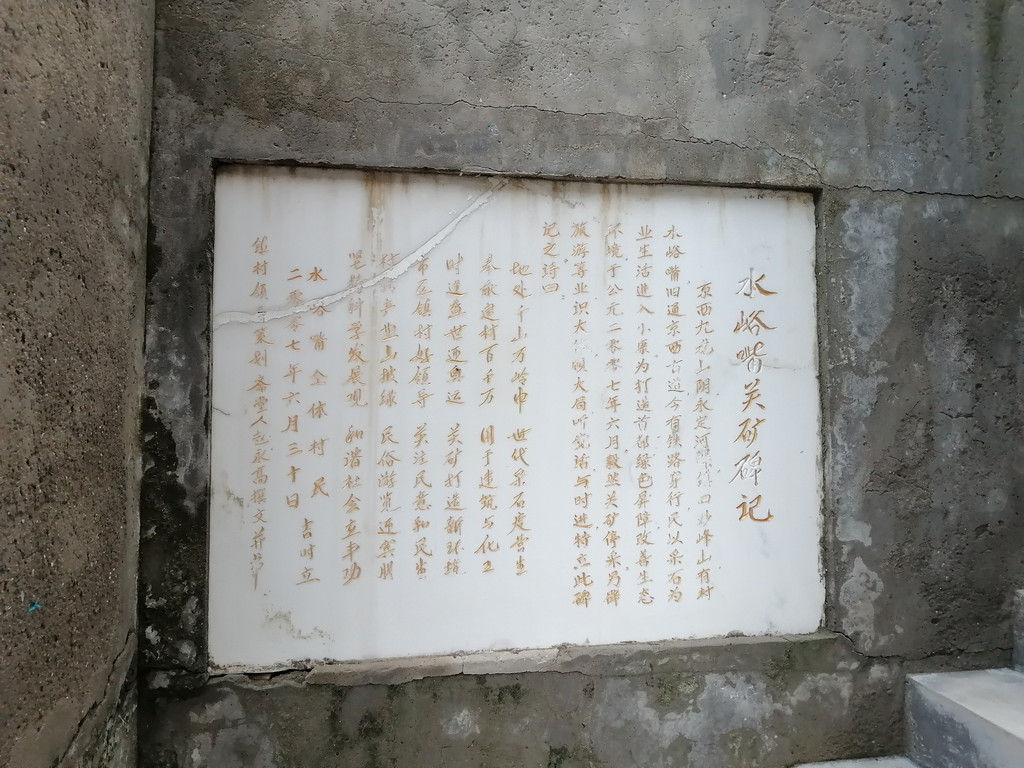 水峪嘴关矿碑记
京西九龙山阴永定河 口妙峰山有村
水峪嘴旧道京西古道今有铁路穿行民以采石为
业生活进入小康为打造首都绿色屏障改善生态
环境于公元二零零七年六月毅然关矿停采为群
旅游等业识大 顾大局 与时进特立此碑
记之诗曰
地处千山万岭中 世代采石度营生
奉献建村百千万 用于建筑与化工
时逢盛世逐真运 关矿打造新环境
市区镇村好领导 关注民意和民生
产业 民俗游览近
科学发展观 和谐社会立丰功
水峪嘴全体村民
二零零七年六月三十日 吉时立
镇村领 斋堂人 撰文并书